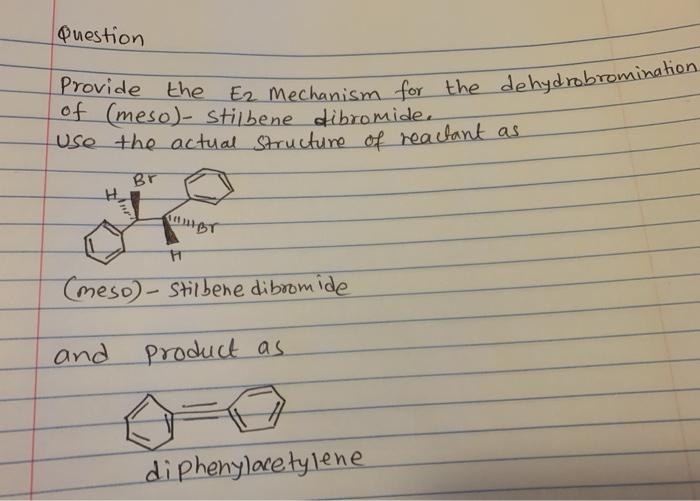 Question
Provide the E2 Mechanism for the dehydrobromination
of (meso)- stilbene dibromide.
Use the actual structure of reactant as
Br
H
Br
H
(meso)- stilbene dibromide
and product as
diphenylacetylene